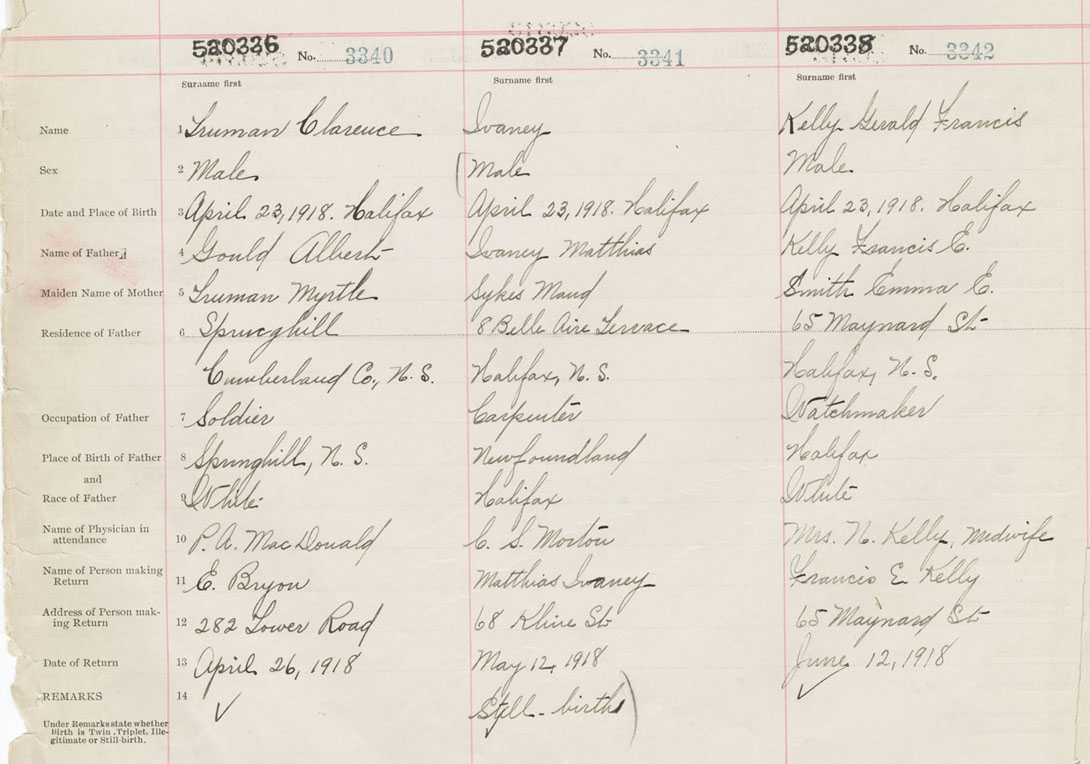 520336 No. 3340 520337 No. 3341 520338 No. 3342
Surname first Surname first Surname first
Name 1 Truman Clarence Ivaney Kelly Gerald Francis
Sex 2 Male Male Male
Date and Place of Birth 3 April 23, 1918. Halifax April 23, 1918. Halifax April 23, 1918. Halifax
Name of Father 4 Gould Albert Ivaney Matthias Kelly Francis E.
Maiden Name of Mother 5 Truman Myrtle Sykes Maud Smith Emma E.
Residence of Father 6 Springhill 8 Belle Aire Terrace 65 Maynard St
Cumberland Co., N. S. Halifax, N. S. Halifax, N. S.
Occupation of Father 7 Soldier Carpenter Watchmaker
Place of Birth of Father 8 Springhill, N. S. Newfoundland Halifax
and
Race of Father 9 White Halifax White
Name of Physician in
attendance 10 P. A. MacDonald C. S. Morton Mrs. N. Kelly, Midwife
Name of Person making
Return 11 E. Bryon Matthias Ivaney Francis E Kelly
Address of Person mak-
ing Return 12 282 Tower Road 68 St 65 Maynard St
Date of Return 13 April 26, 1918 May 12, 1918 June 12, 1918
REMARKS 14 Still-birth
Under Remarks state whether
Birth is Twin, Triplet, Ille-
gitimate or Still-birth.